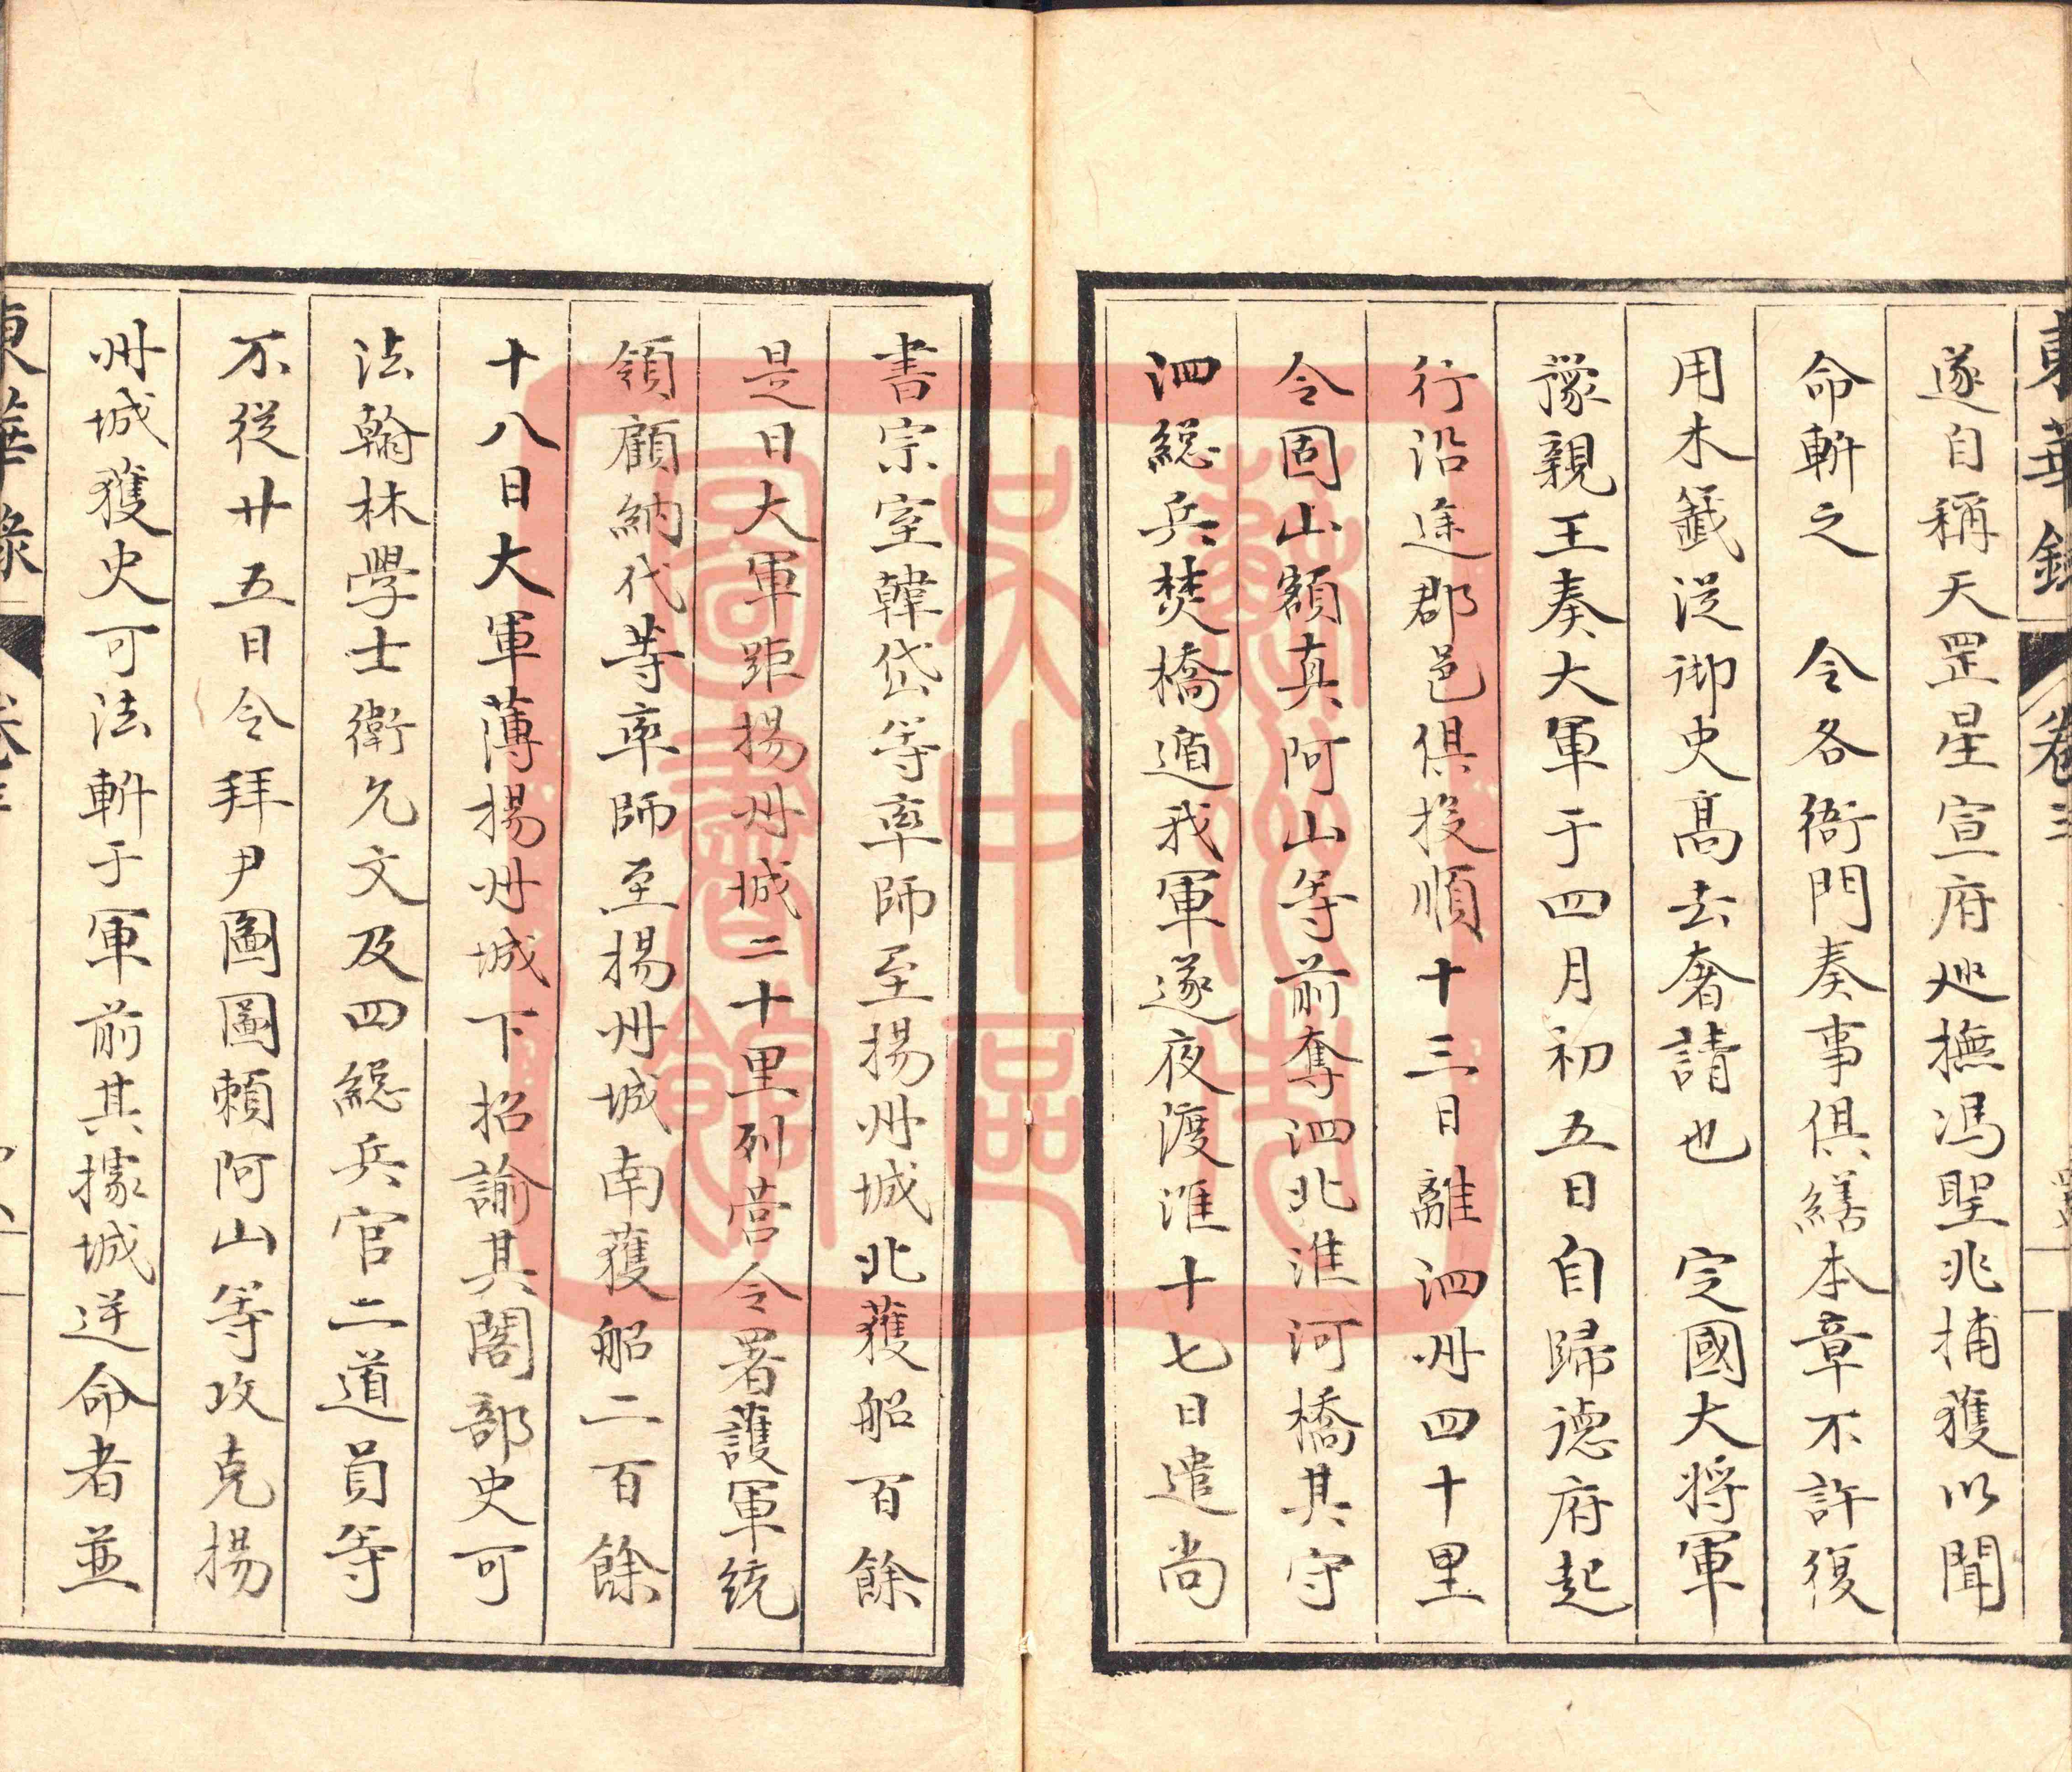 東華錄 卷三
遂自稱天罡星宣府廵撫馮聖兆捕獲以聞
命斬之 令各衙門奏事俱繕本章不許復
用木籤從御史髙去奢請也 定國大將軍
豫親王奏大軍于四月初五日自歸德府起
行沿途郡邑俱投順十三日離泗州四十里
令固山額真阿山等前奪泗北淮河橋其守
泗総兵焚橋遁我軍遂夜渡淮十七日遣尚
書宗室韓岱等率師至揚州城北獲船百餘
是日大軍距揚州城二十里列营令署護軍統
領顧納代等率師至揚州城南獲船二百餘
十八日大軍薄揚州城下招諭其閣部史可
法翰林學士衛允文及四総兵官二道員等
不從廿五日令拜尹圖圖賴阿山等攻克揚
州城獲史可法斬于軍前其據城逆命者並
東華錄
蘇州市
吳中區
圖書館